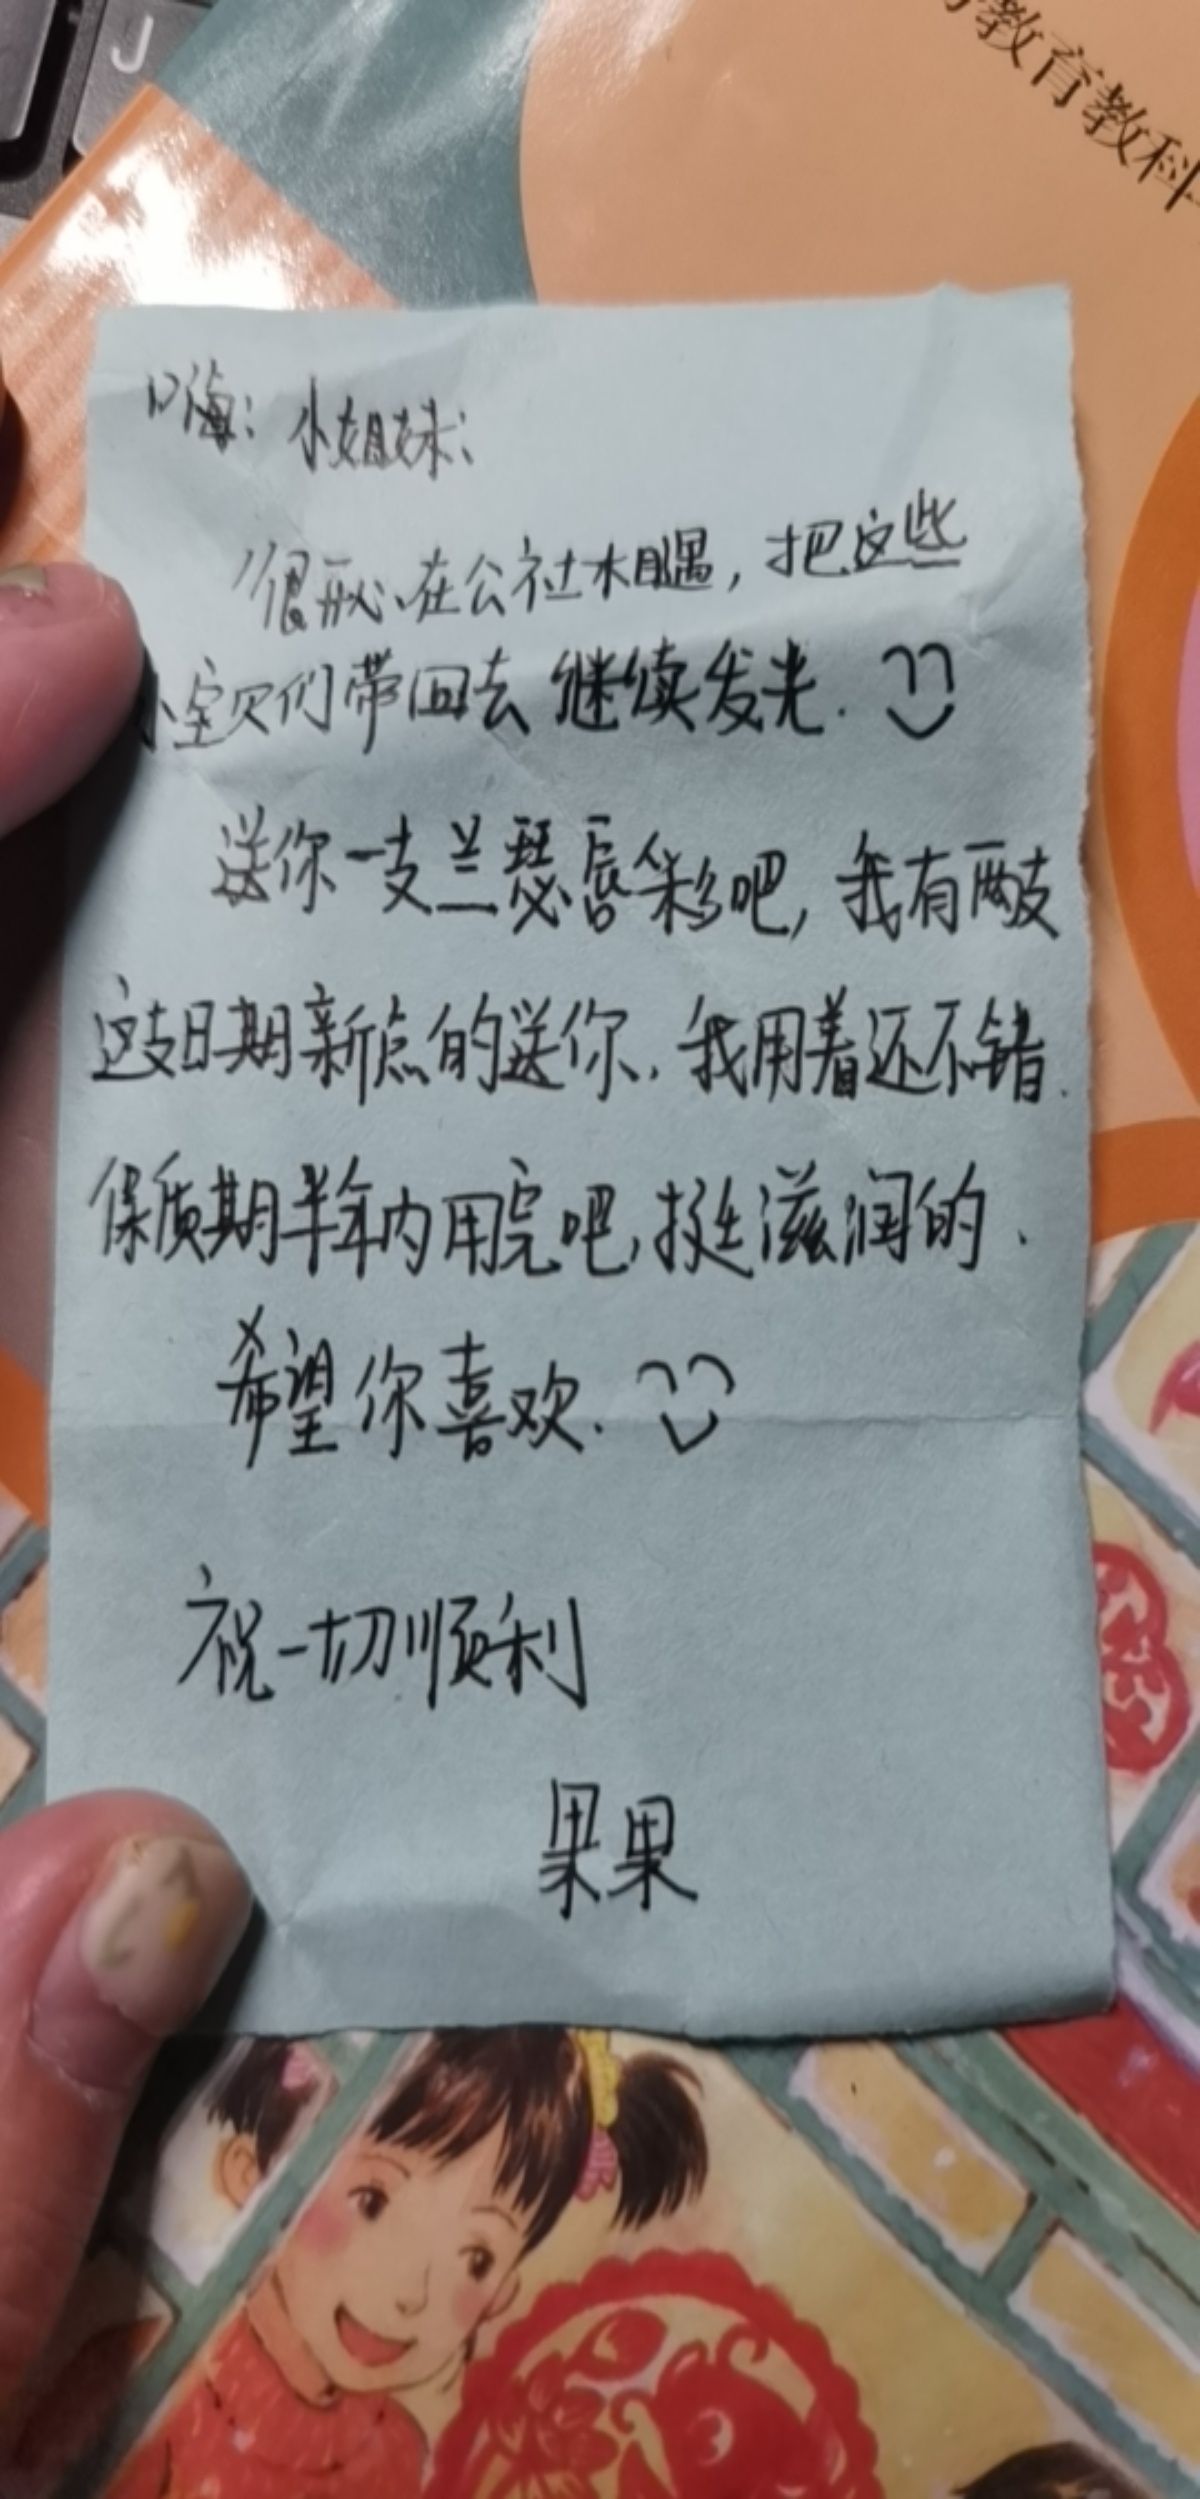 J
教育教科
嗨：小姐妹：
很开心在公社相遇，把这些
小宝贝们带回去继续发光.
送你一支兰瑟唇彩吧，我有两支
这支日期新点的送你，我用着还不错.
保质期半年内用完吧，挺滋润的、
希望你喜欢.
祝一切顺利
果果